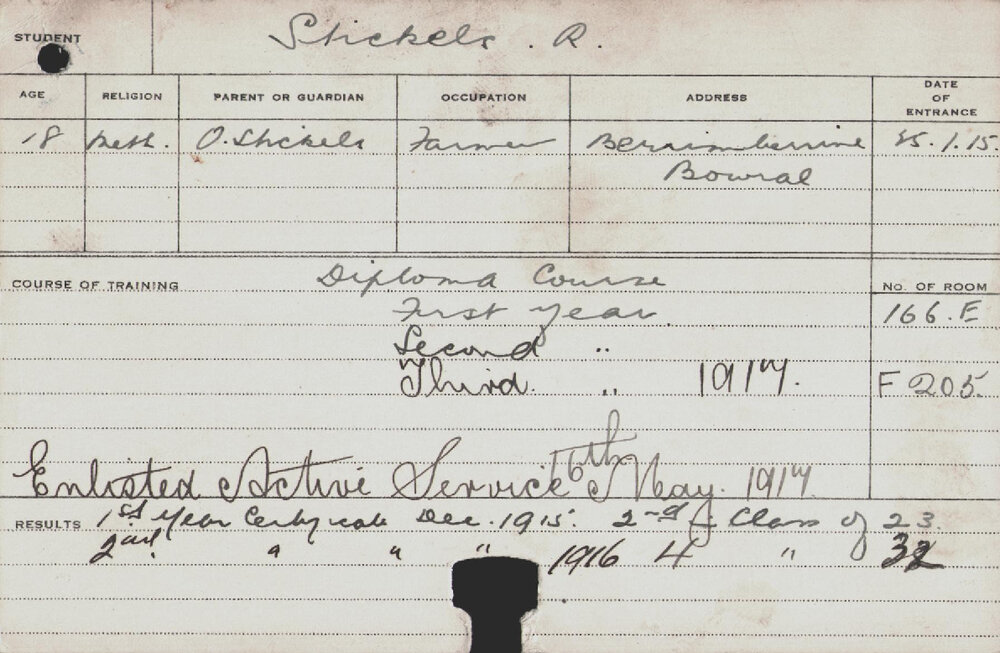 STUDENT Stickels. R.
AGE RELIGION PARENT OR GUARDIAN OCCUPATION ADDRESS DATE OF ENTRANCE
18 Meth. O. Stickels Farmer Berrimberrine 25.1.15.
Bowral
COURSE OF TRAINING Diploma Course No. OF ROOM
First year. 166.E
Second "
Third. " 1917. F 205.
Enlisted Active Service 16th May. 1917.
RESULTS 1st Year Certificate Dec. 1915. 2nd of Class of 23.
2nd. " " " 1916 4 " 32